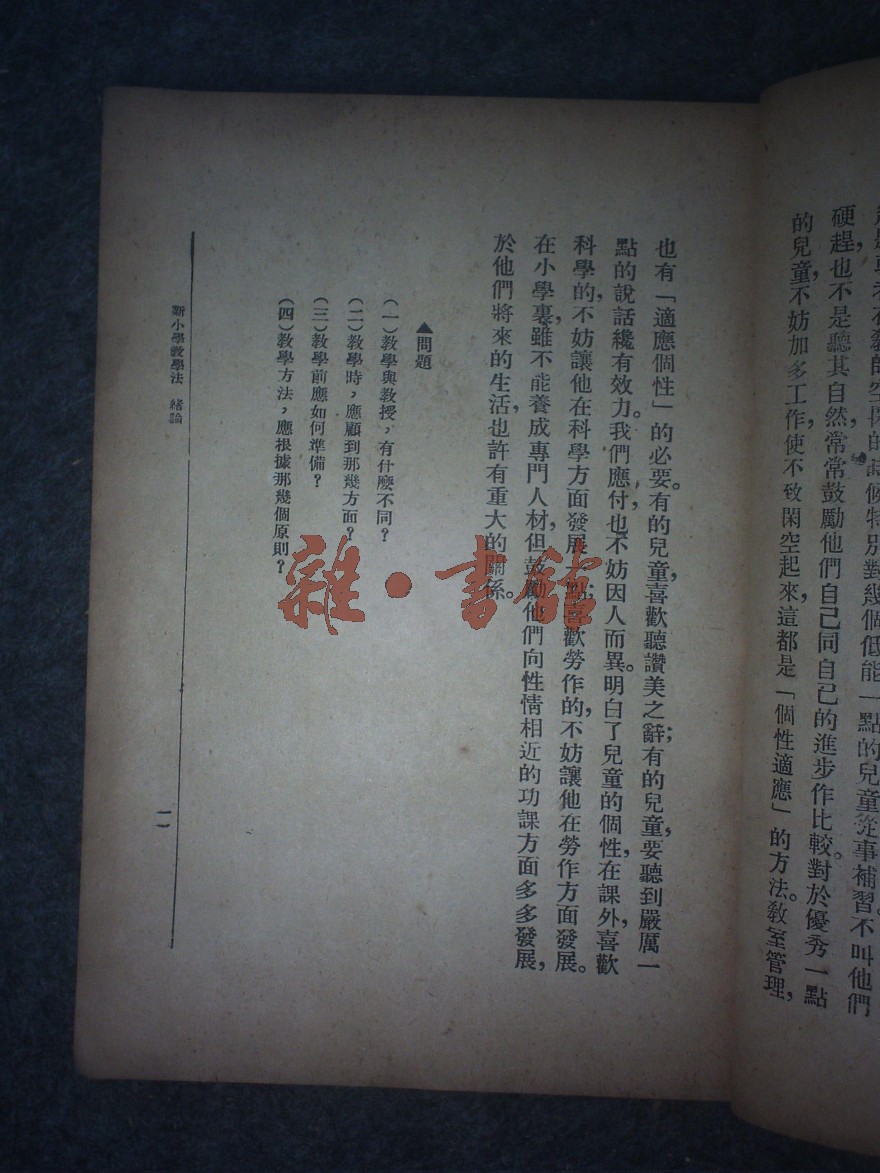 的空閑的時候特別對幾個低能一點的兒童從事補習。不叫他們
硬趕，也不是聽其自然，常常鼓勵他們自己同自己的進步作比較。對於優秀一點
的兒童，不妨加多工作，使不致閑空起來，這都是「個性適應」的方法。教室管理，
也有「適應個性」的必要。有的兒童，喜歡聽讚美之辭；有的兒童，要聽到嚴厲一
點的說話纔有效力。我們應付也，不妨因人而異。明白了兒童的個性，在課外，喜歡
科學的，不妨讓他在科學方面發展一點；喜歡勞作的，不妨讓他在勞作方面發展。
在小學裏，雖不能養成專門人材，但鼓勵他們向性情相近的功課方面多多發展，
於他們將來的生活，也許有重大的關係。
▲問題
(一)教學與教授，有什麼不同？
(二)教學時，應顧到那幾方面？
(三)教學前應如何準備？
(四)教學方法，應根據那幾個原則？
新小學教學法　緒論
一一
雜·書館